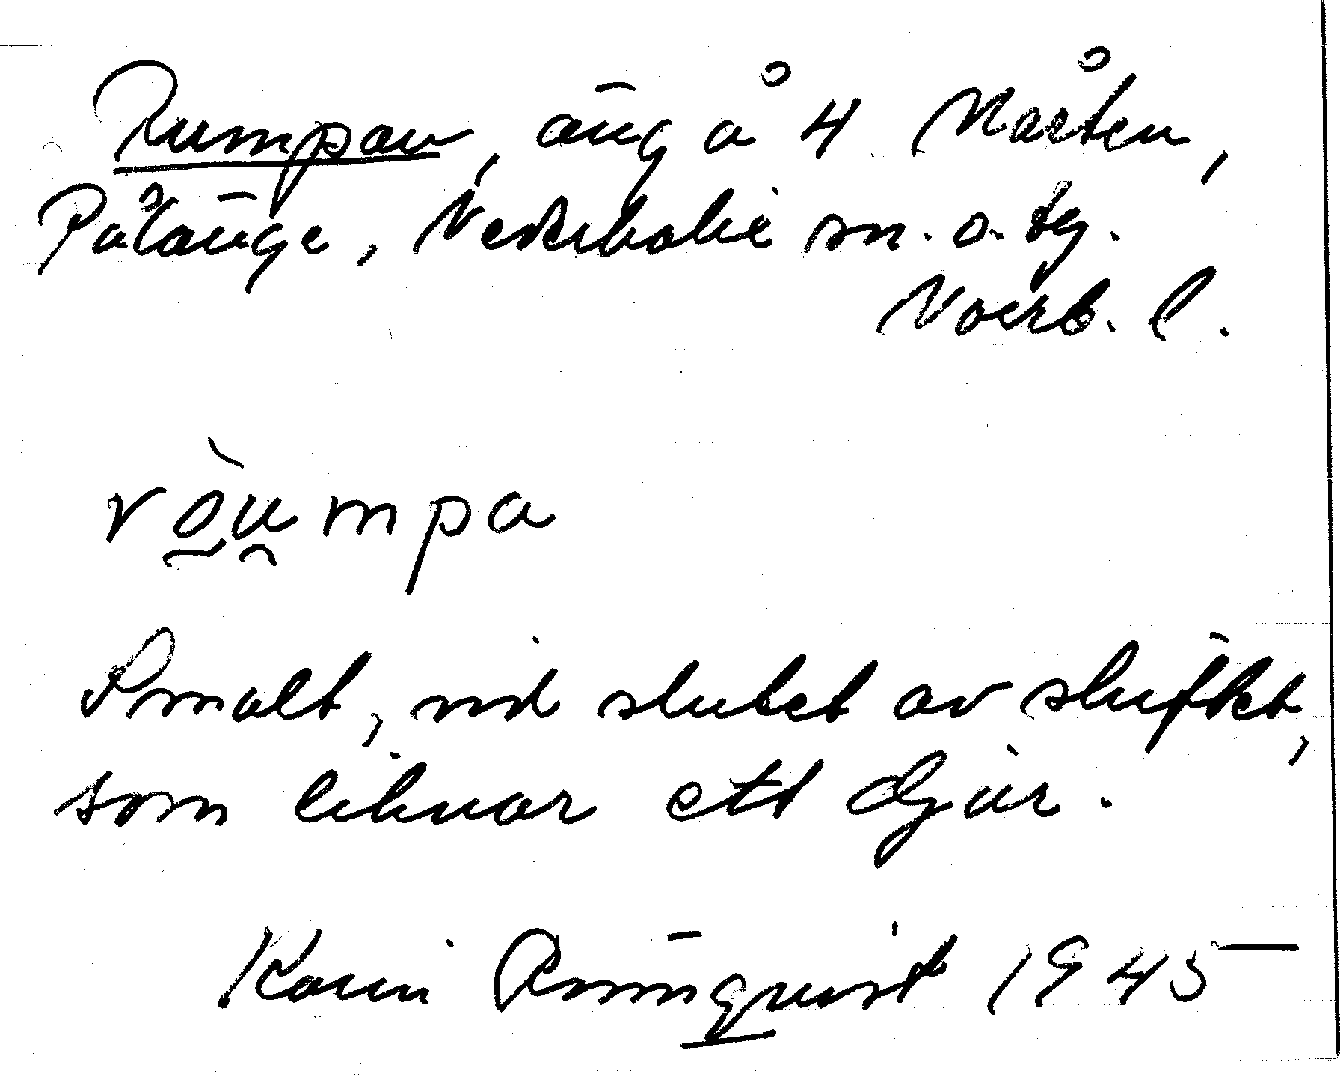 Rumpan, äng å 4 Mårten,
Pålänge, Nederkalix sn. o. tg.
Norrb. l.
ròu̯mpa
Smalt, vid slutet av skiftet,
som liknar ett djur.
Karin Rönnqvist 1945